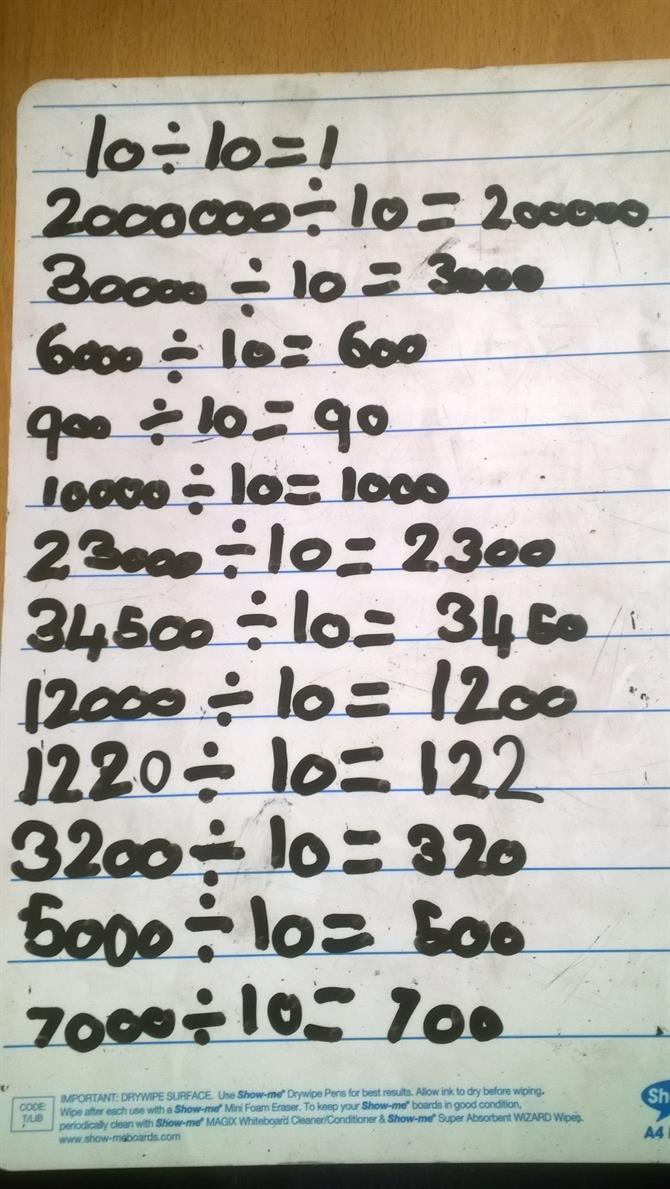 10÷10=1
2000000÷10=200000
30000÷10=3000
6000÷10=600
900÷10=90
10000÷10=1000
23000÷10=2300
34500÷10=3450
12000÷10=1200
1220÷10=122
3200÷10=320
5000÷10=500
7000÷10=700
CODE: T/LIB
IMPORTANT: DRYWIPE SURFACE. Use Show-me® Drywipe Pens for best results. Allow ink to dry before wiping.
Wipe after each use with a Show-me® Mini Foam Eraser. To keep your Show-me® boards in good condition,
periodically clean with Show-me® MAGIX Whiteboard Cleaner/Conditioner & Show-me® Super Absorbent WIZARD Wipes.
www.show-meboards.com
Sh
A4